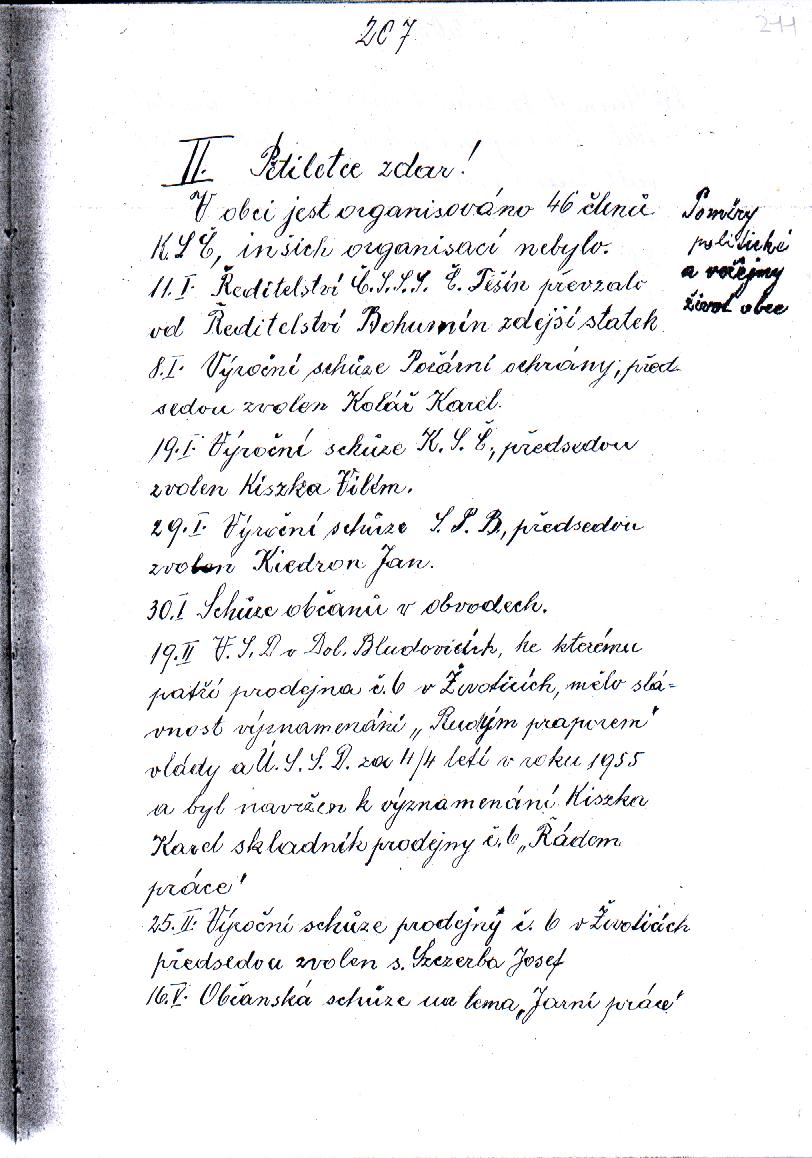 207
211
II. Pětiletce zdar!
V obci jest organisováno 46 členů
K.S.Č, inšich organisací nebylo.
Poměry
politické
a veřejny
život obce
11.I. Ředitelství Č.S.S.S. Č. Těšín převzalo
od Ředitelství Bohumín zdejší statek.
8.I. Výroční schůze Požární ochrány, před-
sedou zvolen Kolář Karel.
19.I. Výroční schůze K.S.Č., předsedou
zvolen Kiszka Vilém.
29.I. Výroční schůze S.P.B., předsedou
zvolen Kiedron Jan.
30.I Schůze občanů v obvodech.
19.II V.S.D v Dol. Bludovicích, ke kterému
patří prodejna č.6 v Životicích, mělo slá=
vnost významenání „Rudým praporem"
vlády a Ú.S.S.D. za 4/4 letí v roku 1955
a byl navržen k významenání Kiszka
Karel skladník prodejny č.6 „Řádem
práce"
25.II. Výroční schůze prodejny č. 6 v Životicách
předsedou zvolen s. Szczerba Josef
16.V. Občanská schůze na tema „Jarní práce"